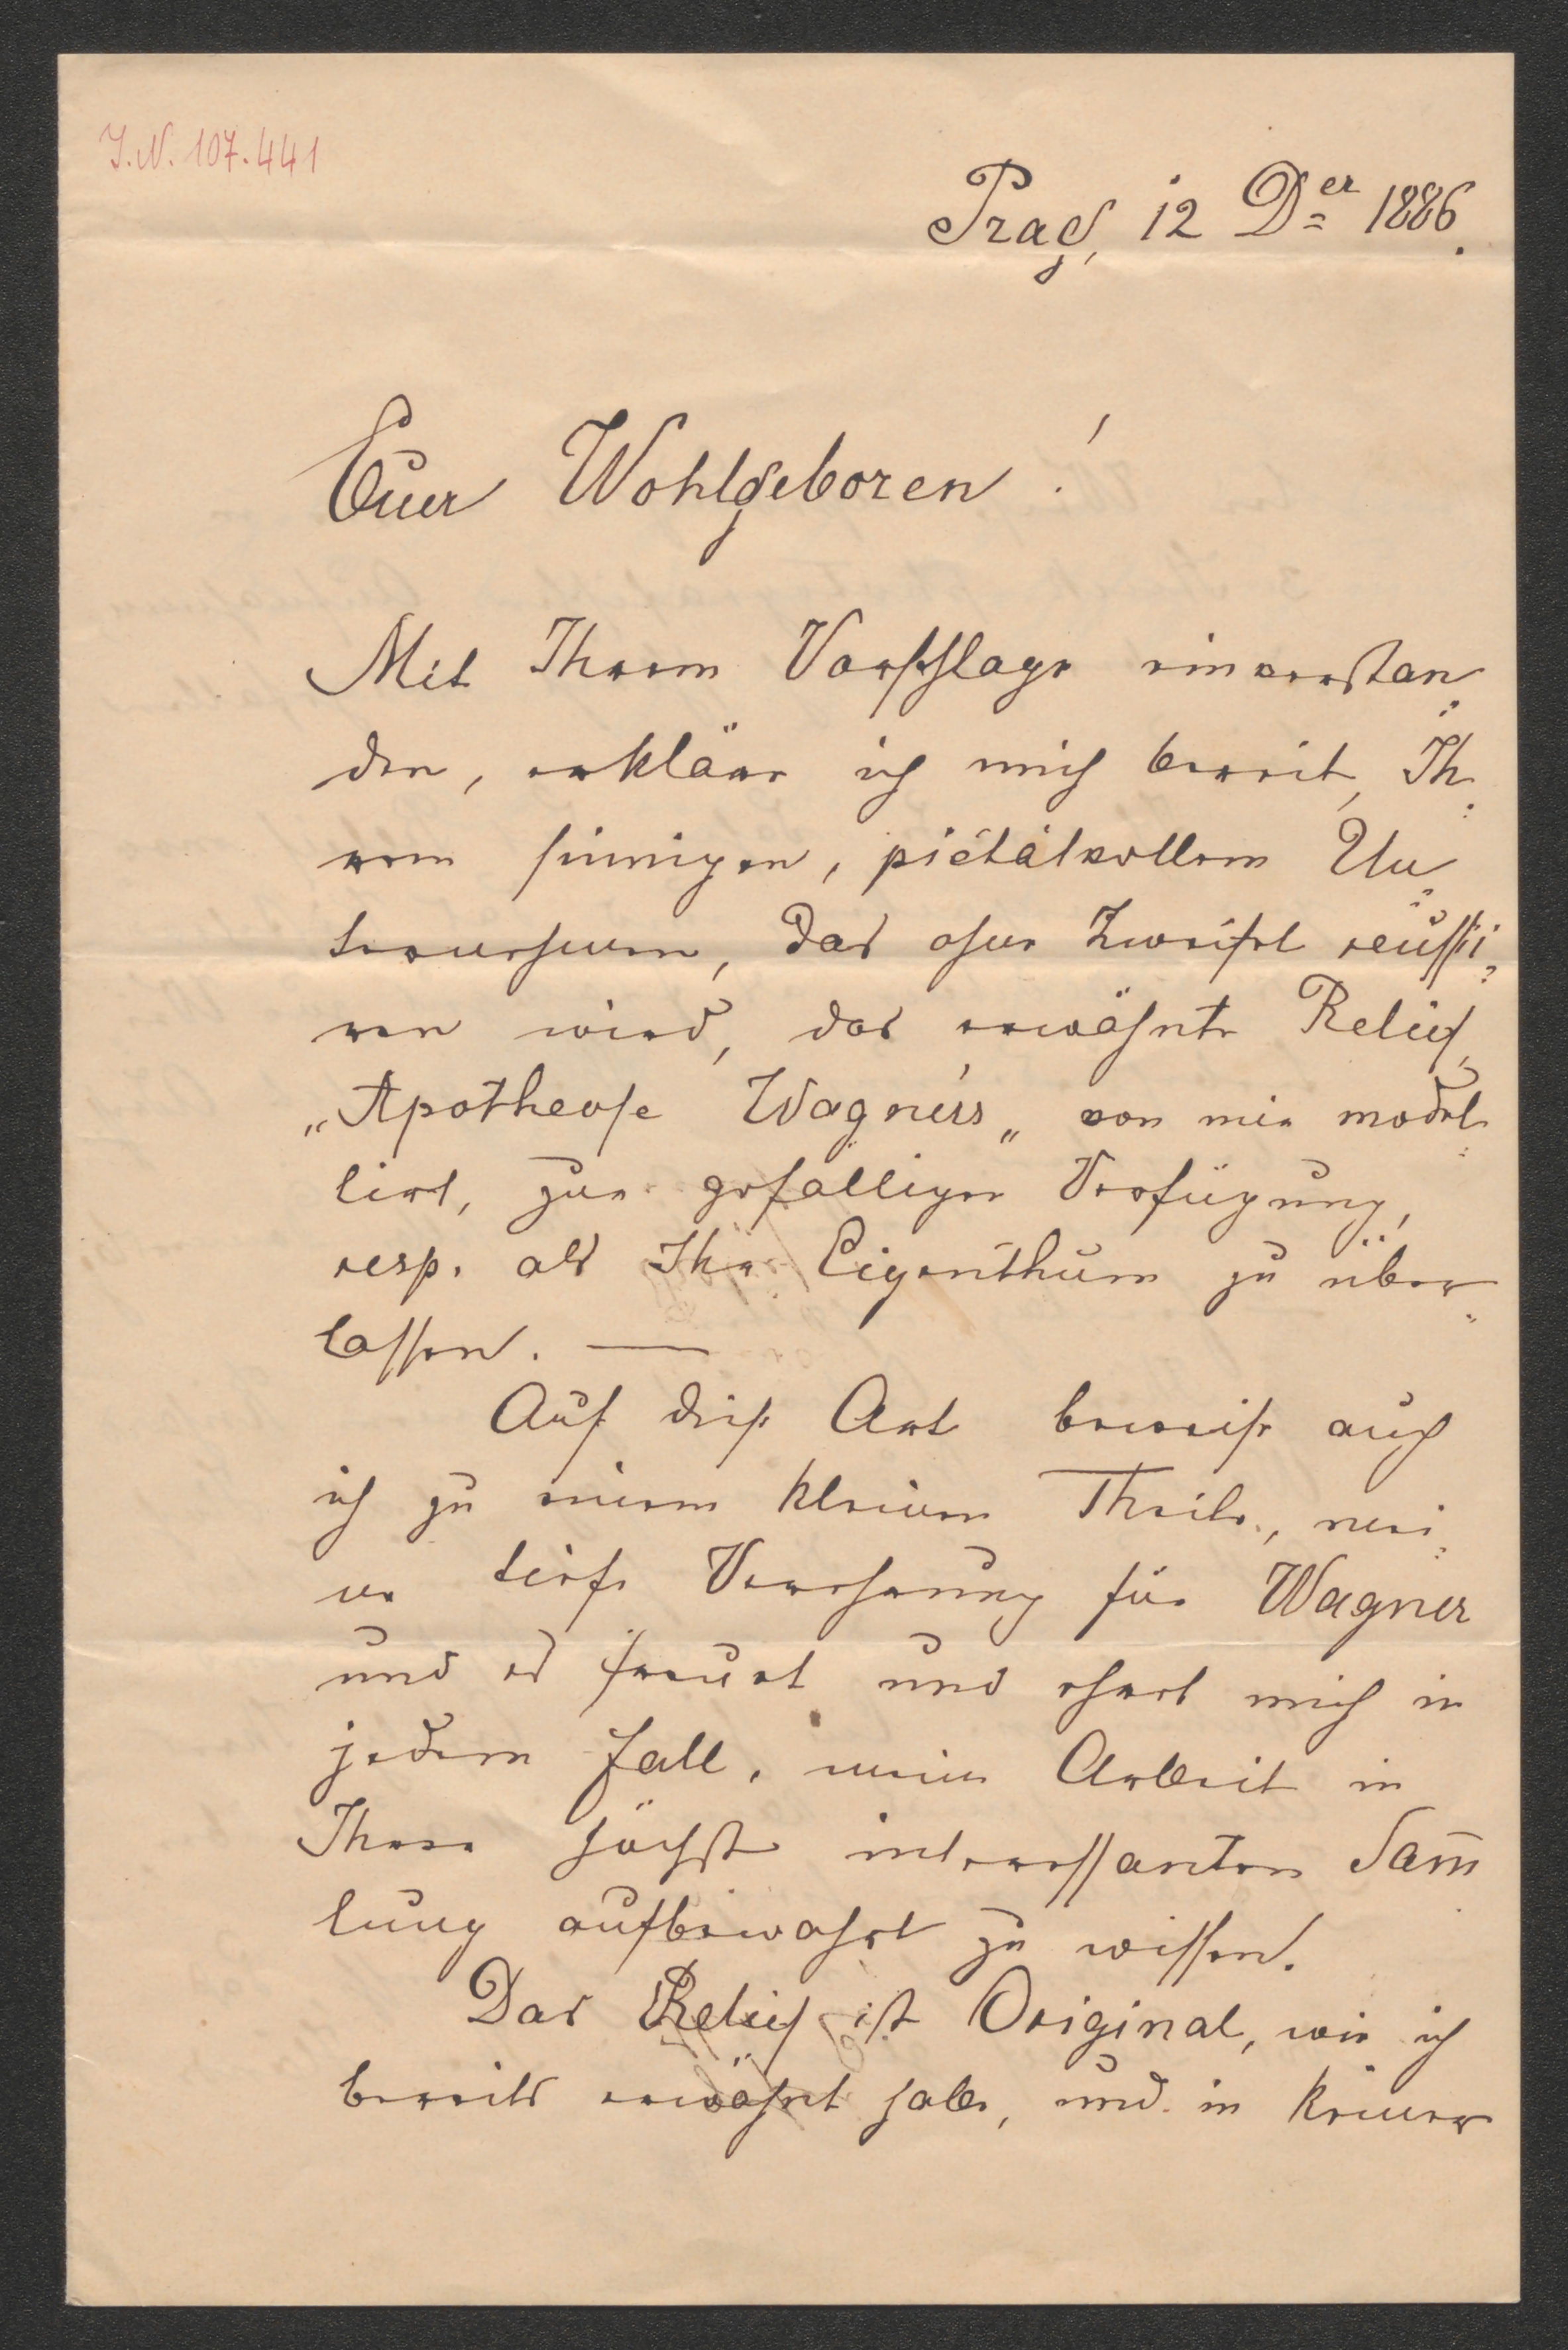 I.N. 107.441
Prag, 12 D=er 1886.
Euer Wohlgeboren!
Mit Ihrem Vorschlage einverstan=
den, erkläre ich mich bereit, Ih=
rem sinnigen, piétätvollem Un=
ternehmen, das ohne Zweifel reussi=
ren wird, das erwähnte Relief,
„Apotheose Wagner's„ von mir model=
lirt, zur gefälligen Verfügung,
resp. als Ihr Eigenthum zu über=
lassen. —
Auf diese Art beweise auch
ich zu einem kleinen Theile, mei=
ne tiefe Verehrung für Wagner
und es freuet und ehret mich in
jedem Fall, meine Arbeit in
Ihrer höchst interessanten Sam̅
lung aufbewahrt zu wissen.
Das Relief ist Original, wie ich
bereits erwähnt habe, und in keiner